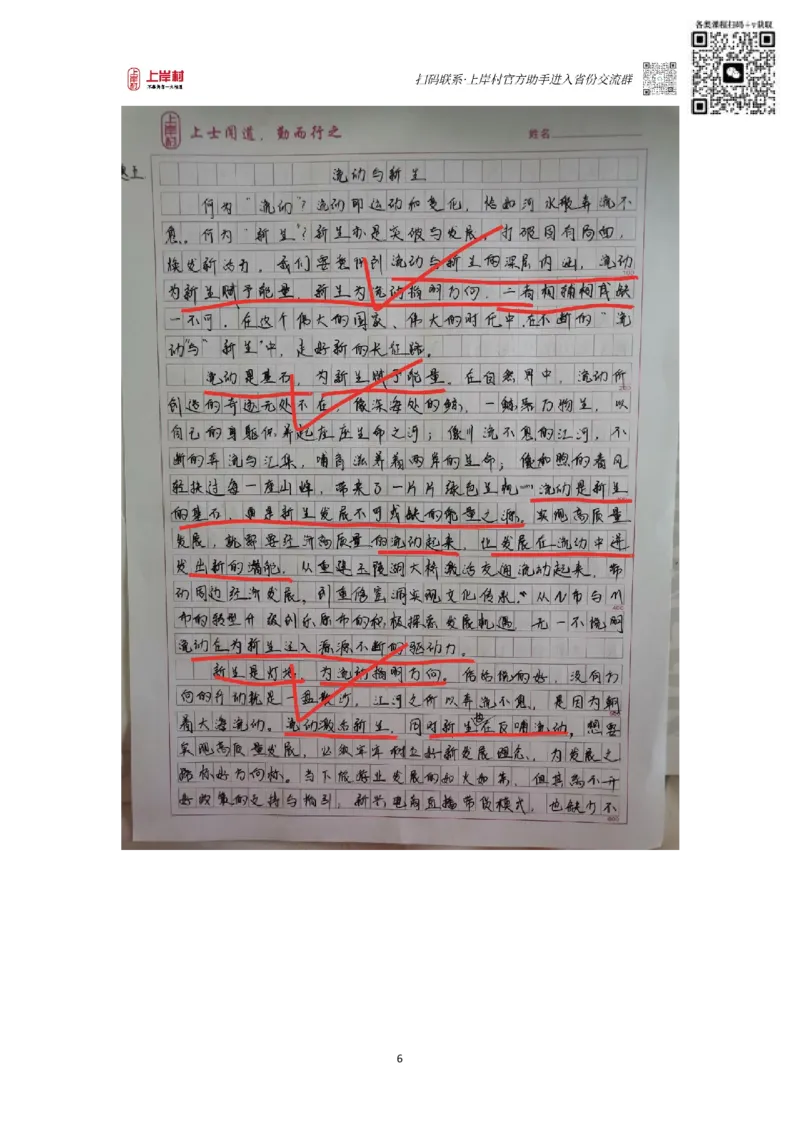 各类课程扫码+v获取
上岸村
扫码联系·上岸村官方助手进入省份交流群
上岸村
上士闻道，勤而行之
姓名
流动与新生
何为“流动”？流动即运动和变化，恰如河水般奔流不
息。何为“新生”？新生亦是突破与发展，打破固有局面，
焕发新活力，我们要想得到流动与新生的深层内涵，流动
为新生赋予能量，新生为流动指明方向，二者相辅相成缺
一不可，在这个伟大的国家、伟大的时代中，在不断的“流
动”与“新生”中，走好新的长征路。
流动是基石，为新生赋予能量。在自然界中，流动所
创造的奇迹无处不在，像深海处的鲸，一鲸落万物生，以
自己的身躯供养起座座生命之河；像川流不息的江河，不
断的奔流与汇集，哺育滋养着两岸的生命；像和煦的春风
轻抚过每一座山峰，带来了一片片绿色生机……流动是新生
的基石，更是新生发展不可或缺的能量之源。实现高质量
发展，就需要经济高质量的流动起来，让发展在流动中迸
发出新的潜能，从重建玉陵湖大桥激活交通流动起来，带
动周边经济发展，到重修窑洞实现文化传承，从N市与M
市的转型升级到乐原市的积极探索发展机遇，无一不说明
流动在为新生注入源源不断的驱动力。
新生是灯塔，为流动指明方向。俗话说的好，没有方
向的行动就是一盘散沙，江河之所以奔流不息，是因为朝
着大海流动。流动激活新生，同时新生也在反哺流动。想要
实现高质量发展，必须牢牢树立好新发展理念，为发展之
路标好方向标。当下服务业发展的如火如荼，但其离不开
好政策的支持与指引，新兴电商直播带货模式，也缺少不
6